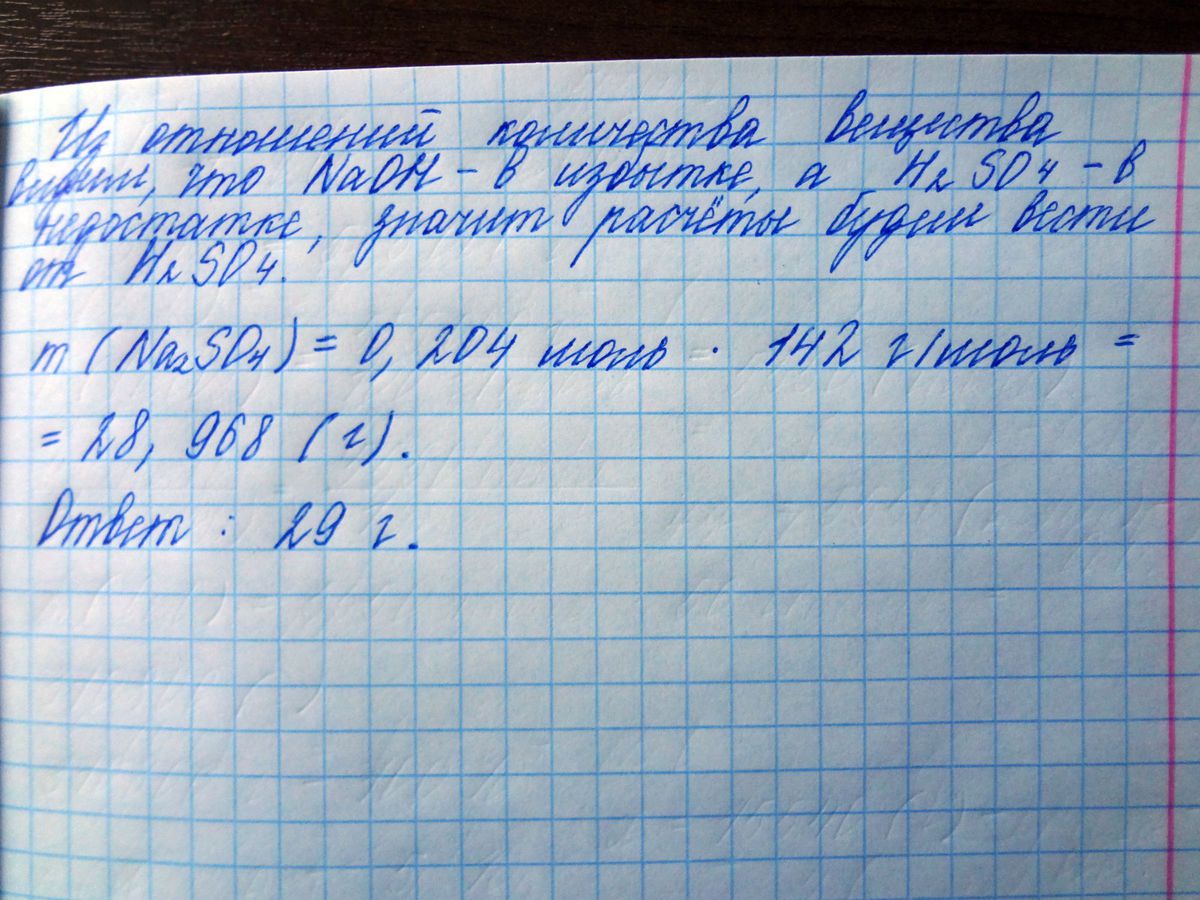 Из отношений количества вещества
видим, что NaOH - в избытке, а H₂SO₄ - в
недостатке, значит расчёты будем вести
от H₂SO₄.
m (Na₂SO₄) = 0, 204 моль · 142 г/моль =
= 28, 968 (г).
Ответ: 29 г.